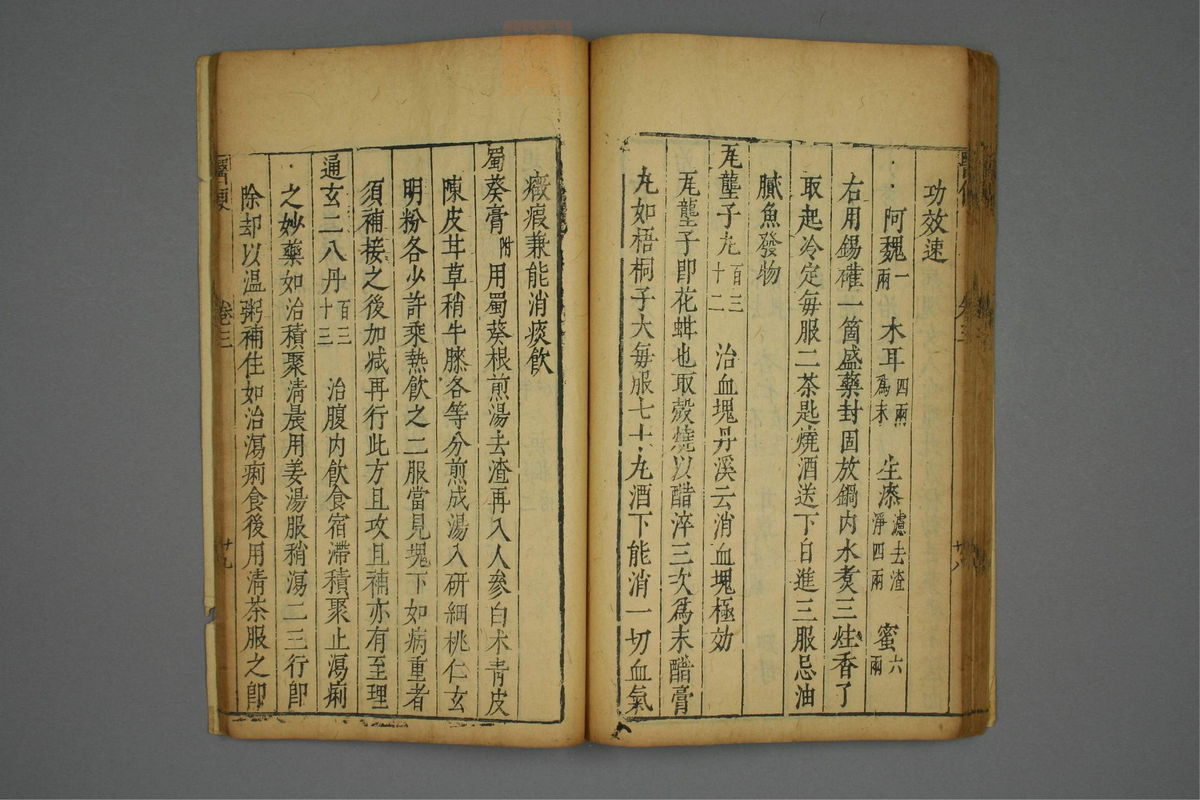 功效速
阿魏一兩 木耳四兩爲末 生漆濾去渣淨四兩 蜜六兩
右用錫礶一箇盛藥封固放鍋内水煮三炷香了
取起冷定每服二茶匙燒酒送下日進三服忌油
膩魚發物
瓦壟子丸百三十二 治血塊丹溪云消血塊極効
瓦壟子即花蚶也取殼燒以醋淬三次爲末醋膏
丸如梧桐子大每服七十丸酒下能消一切血氣
癥瘕兼能消痰飲
蜀葵膏附 用蜀葵根煎湯去渣再入人參白朮青皮
陳皮甘草稍牛膝各等分煎成湯入研細桃仁玄
明粉各少許乘熱飲之二服當見塊下如病重者
須補接之後加減再行此方且攻且補亦有至理
通玄二八丹百三十三 治腹内飲食宿滯積聚止瀉痢
之妙藥如治積聚清晨用姜湯服稍瀉二三行即
除却以温粥補住如治瀉痢食後用清茶服之即
醫便 卷三 廿九